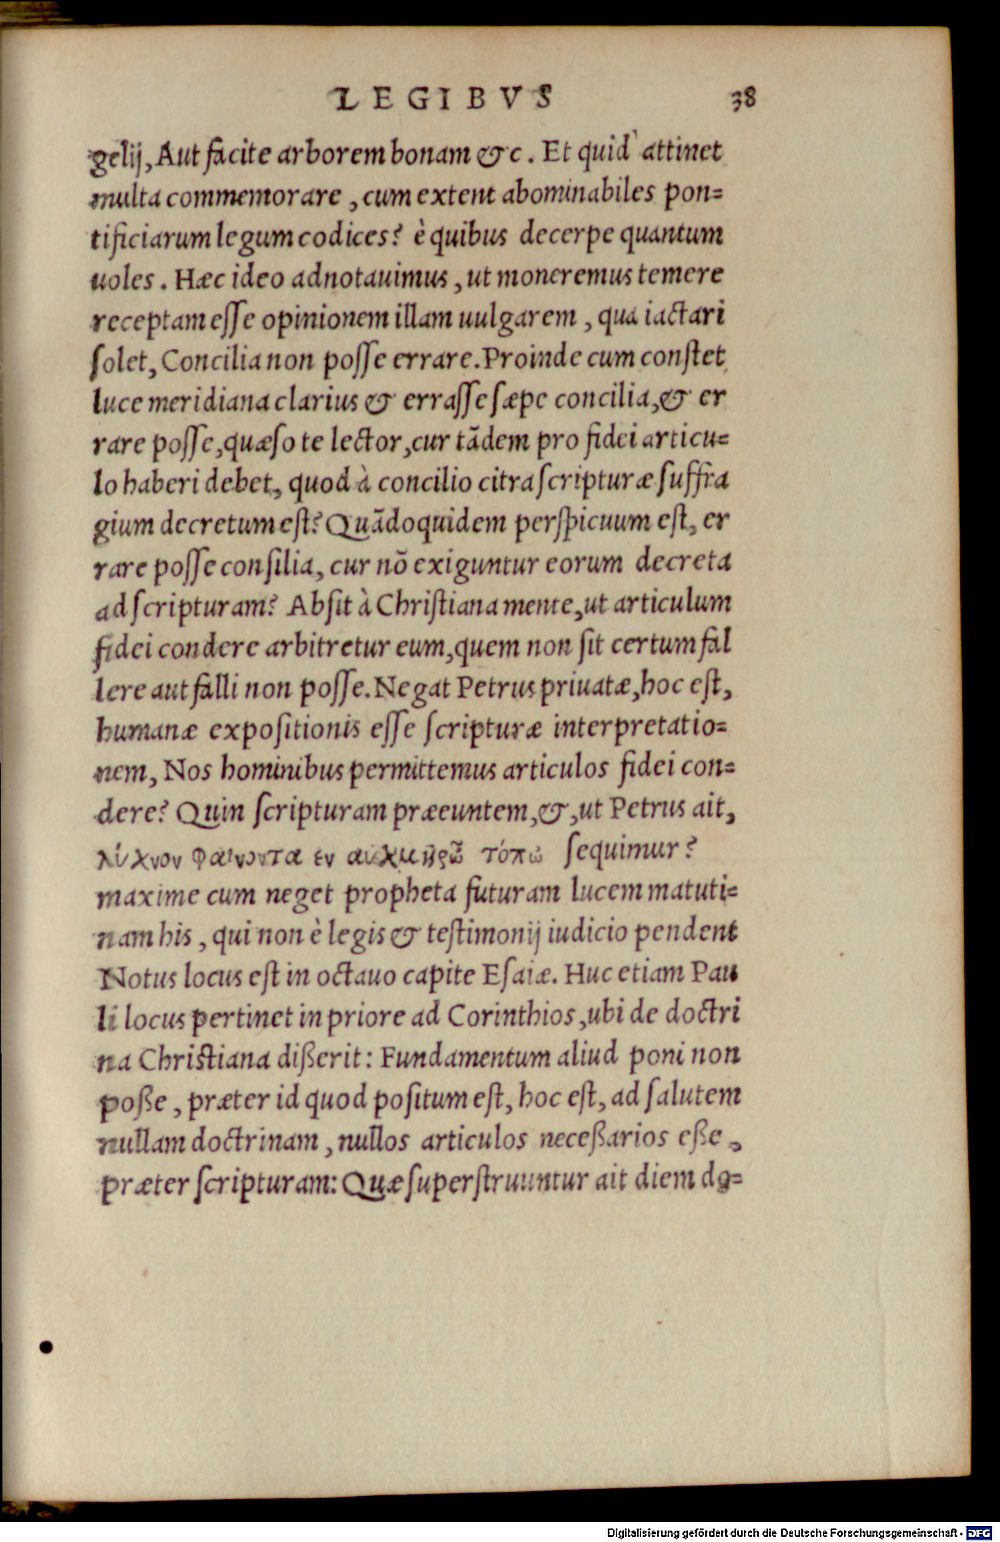 LEGIBVS 38
gelij, Aut facite arborem bonam &c. Et quid attinet
multa commemorare, cum extent abominabiles pon=
tificiarum legum codices? è quibus decerpe quantum
uoles. Hæc ideo adnotauimus, ut moneremus temere
receptam esse opinionem illam uulgarem, qua iactari
solet, Concilia non posse errare. Proinde cum constet
luce meridiana clarius & errasse sæpe concilia, & er
rare posse, quæso te lector, cur tādem pro fidei articu=
lo haberi debet, quod à concilio citra scripturæ suffra
gium decretum est? Quādoquidem perspicuum est, er
rare posse consilia, cur nō exiguntur eorum decreta
ad scripturam? Absit à Christiana mente, ut articulum
fidei condere arbitretur eum, quem non sit certum fal
lere aut falli non posse. Negat Petrus priuatæ, hoc est,
humanæ expositionis esse scripturæ interpretatio=
nem, Nos hominibus permittemus articulos fidei con=
dere? Quin scripturam præeuntem, &, ut Petrus ait,
λύχνον φαίνοντα ἐν αὐχμηρῶ τόπω sequimur?
maxime cum neget propheta futuram lucem matuti=
nam his, qui non è legis & testimonij iudicio pendent
Notus locus est in octauo capite Esaiæ. Huc etiam Pau
li locus pertinet in priore ad Corinthios, ubi de doctri
na Christiana dißerit: Fundamentum aliud poni non
poße, præter id quod positum est, hoc est, ad salutem
nullam doctrinam, nullos articulos neceßarios eße,
præter scripturam: Quæ superstruuntur ait diem do=
Digitalisierung gefördert durch die Deutsche Forschungsgemeinschaft - DFG